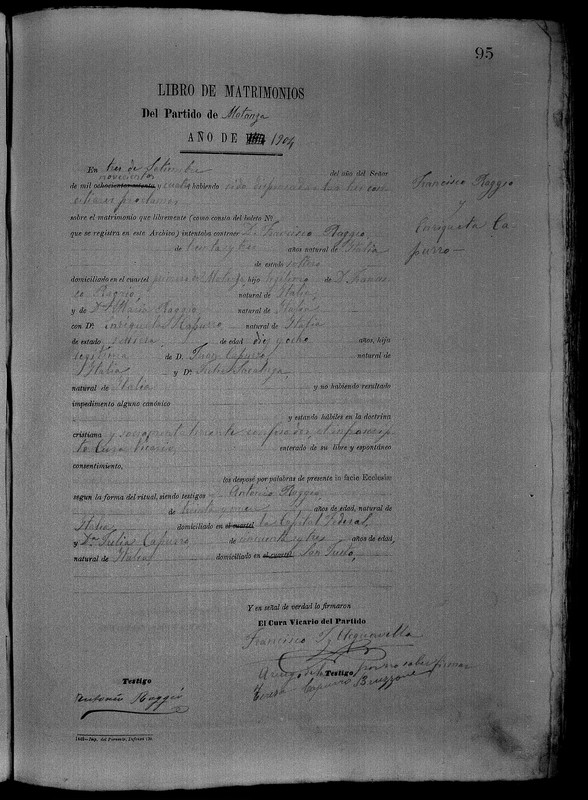 95
LIBRO DE MATRIMONIOS
Del Partido de Matanza
AÑO DE 1904
Francisco Raggio
y
Enriqueta Ca-
purro
En tres de Setiembre del año del Señor
de mil novecientos y cuatro habiendo sido dispensados tres con-
ciliares proclamas
sobre el matrimonio que libremente (como consta del boleto Nº
que se registra en este Archivo) intentaba contraer D. Francisco Raggio,
de treinta y tres años natural de Italia
de estado soltero
domiciliado en el cuartel primero de Matanza hijo legítimo de D. Francis-
co Raggio, natural de Italia,
y de Dª María Raggio, natural de Italia
con Dª. Enriqueta Capurro natural de Italia
de estado soltera de edad diez y ocho años, hija
legítima de D. Capurro natural de
Italia y Dª
natural de Italia y no habiendo resultado
impedimento alguno canónico
y estando hábiles en la doctrina
cristiana y confesados, el infrascrip-
to Cura Vicario enterado de su libre y espontáneo
consentimiento,
los desposé por palabras de presente in facie Ecclesiæ
segun la forma del ritual, siendo testigos Antonio Raggio,
de treinta y años de edad, natural de
Italia domiciliado en la Capital Federal,
y Dª Julia Capurro de cincuenta y tres años de edad,
natural de Italia domiciliado en San Justo,
Y en señal de verdad lo firmaron
El Cura Vicario del Partido
Francisco
Arruego de la Testigo por no saber firmar
Teresa Capurro Bruzzone
Testigo
Antonio Raggio